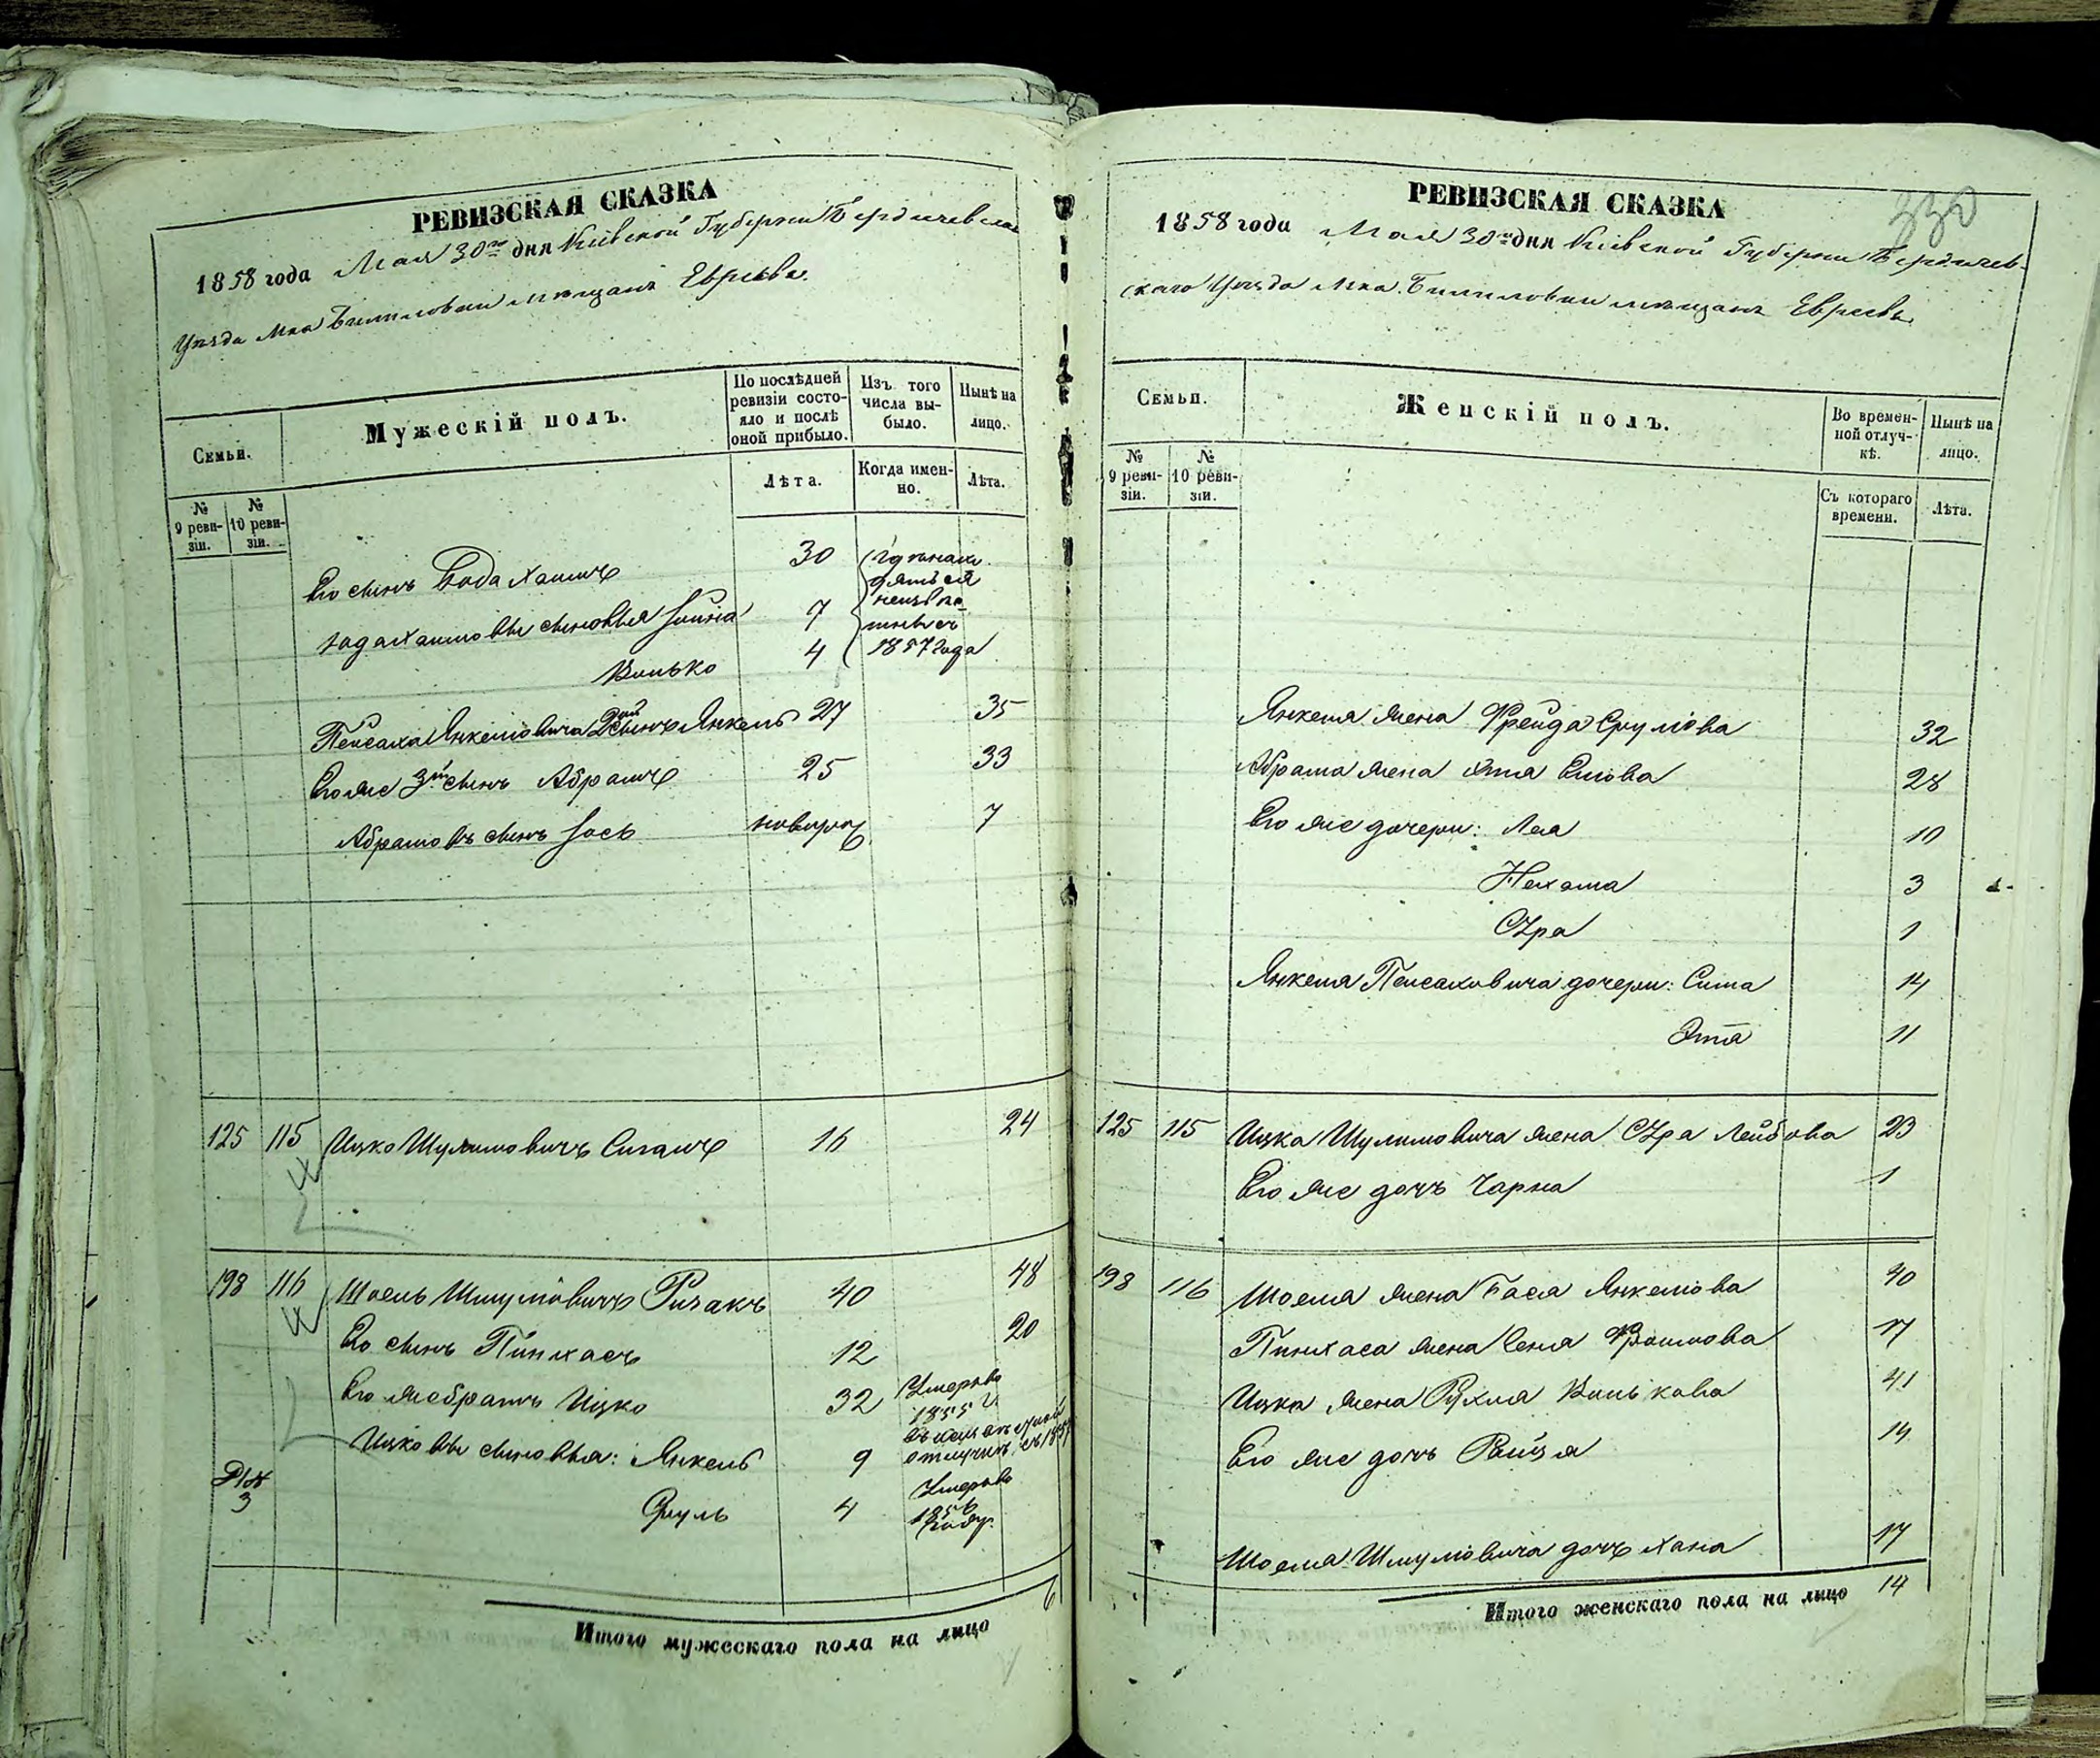 РЕВИЗСКАЯ СКАЗКА
1858 года Мая 30го дня Кіевской Губерніи Бердичевскаго
Уѣзда Мка Бѣлиловки мѣщанъ Евреевъ.
Семьи.
Мужескій полъ.
По послѣдней ревизіи состояло и послѣ оной прибыло.
Изъ того числа выбыло.
Нынѣ на лицо.
№ 9 ревизіи.
№ 10 ревизіи.
Лѣта.
Когда именно.
Лѣта.
Его сынъ 30
сыновья 7
Волько 4
1857 года
Пейсаха Янкелевича 2ой сынъ Янкель 27 35
Его же 3й сынъ Абрамъ 25 33
Абрамовъ сынъ Іось новорож. 7
125 115 Ицко Шулимовичъ 16 24
198 116 Шоель Шмулёвичъ Ризакъ 40 48
Его сынъ Пинхасъ 12 20
Его же братъ Ицко 32 Умеръ въ 1855 г.
Ицковы сыновья: Янкель 9
Сруль 4 Умеръ въ 1856 году.
Итого мужескаго пола на лицо 6
330
РЕВИЗСКАЯ СКАЗКА
1858 года Мая 30го дня Кіевской Губерніи Бердичев-
скаго Уѣзда Мка. Бѣлиловки мѣщанъ Евреевъ.
Семьи.
Женскій полъ.
Во временной отлучкѣ.
Нынѣ на лицо.
№ 9 ревизіи.
№ 10 ревизіи.
Съ котораго времени.
Лѣта.
Янкеля жена Фрейда Срулёва 32
Абрама жена 28
Его же дочери: Лея 10
Нехама 3
Сура 1
Янкеля Пейсаховича дочери: Сима 14
Этя 11
125 115 Ицка Шулимовича жена Сура Лейбова 23
Его же дочь Чарна 1
198 116 Шоеля жена Бася Янкелёва 40
Пинхаса жена 17
Ицка жена Рухля Волькова 41
Его же дочь Рейзя 14
Шоеля Шмулёвича дочь Хана 17
Итого женскаго пола на лицо 14